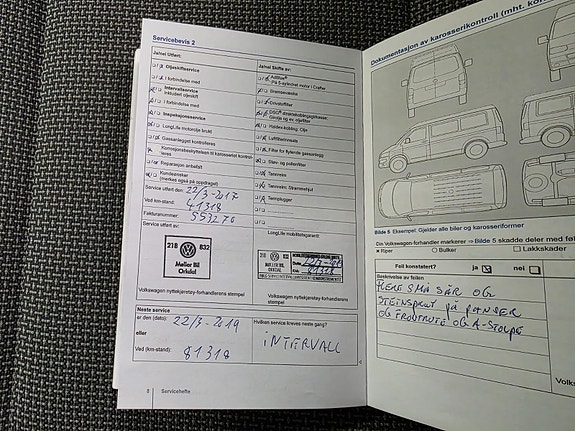 Servicebevis 2
Ja/nei Utført:
Oljeskiftservice
I forbindelse med
Intervallservice
Inkludert oljeskift
I forbindelse med
Inspeksjonsservice
LongLife motorolje brukt
Gassanlegget kontrolleres
Korrosjonsbeskyttelsen til karosseriet kontrolleres
Reparasjon anbefalt
Kundeønsker
(merkes også på oppdraget)
Service utført den 22/3-2017
Ved km-stand: 41318
Fakturanummer: 553276
Service utført av:
218 832
Møller Bil
Orkdal
Volkswagen nyttekjøretøy-forhandlerens stempel
Ja/nei Skifte av:
AdBlue®
På 5-sylindret motor i Crafter
Bremsevæske
Drivstoffilter
Haldex-kobling: Olje
Luftfilterinnsats
Filter for flytende gassanlegg
Støv- og pollenfilter
Tannreim
Tannreim: Strammehjul
Tennplugger
LongLife mobilitetsgaranti:
218 832
MØLLER BIL
ORKDAL
41318
Volkswagen nyttekjøretøy-forhandlerens stempel
Neste service
er den (dato): 22/3-2019
eller
Ved (km-stand): 81318
Hvilken service kreves neste gang?
INTERVALL
8 Servicehefte
Dokumentasjon av karosserikontroll (mht. korro
Bilde 5 Eksempel: Gjelder alle biler og karosseriformer
Din Volkswagen-forhandler markerer ⇒ Bilde 5 skadde deler med føl
Riper Bulker Lakkskader
Feil konstatert? ja nei
Beskrivelse av feilen
FLERE SMÅ SÅR OG
STEINSPRUT PÅ PANSER
OG FRONTRUTE OG A-STOLPE
Volks